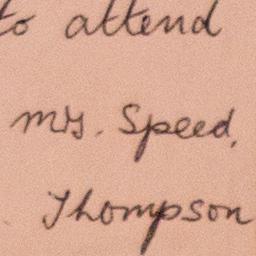 to attend
Mrs. Speed,
Thompson